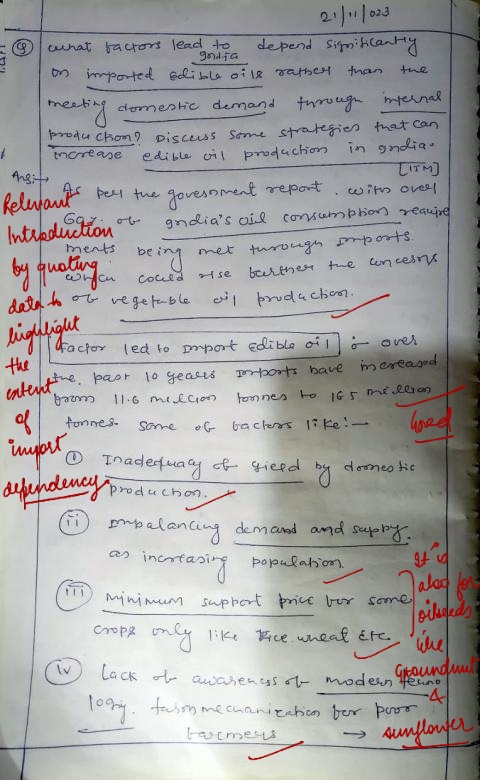 21/11/023
Q what factors lead to India depend significantly
on imported edible oils rather than the
meeting domestic demand through internal
production? Discuss some strategies that can
increase edible oil production in India.
[15M]
Ans:-
As per the government report. with over
60%. of India's oil consumption require
ments being met through imports.
which could rise further the concerns
of vegetable oil production.
Relevant
Introduction
by quoting
data to
highlight
the
extent
of
import
dependency
Factor led to import edible oil :- over
the past 10 years imports have increased
from 11.6 million tonnes to 16.5 million
tonnes. some of factors like:-
Good
i Inadequacy of yield by domestic
production.
ii Imbalancing demand and supply.
as increasing population.
iii Minimum support price for some
crops only like Rice. wheat etc.
It is
also for
oilseeds
like
Groundnut
&
sunflower
iv Lack of awareness of modern techno
logy. farm mechanization for poor
farmers